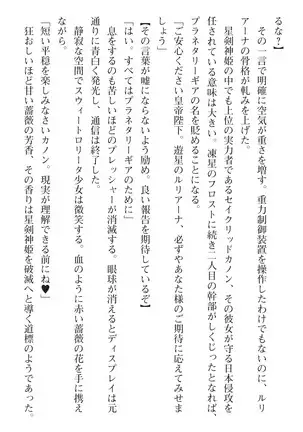 るな?】
　その一言で明確に空気が重さを増す。重力制御装置を操作したわけでもないが、ルリ
アーナの骨格が軋みを上げた。
　星剣神姫の中でも上位の実力者であるセイクリッドカノン、その彼女が守る日本侵攻を
任されている意味は大きい。凍星のフロストに続き二人目の幹部がしくじったとなれば、
プラネタリーギアの名を貶めることになる。
「ご安心ください皇帝陛下。遊星のルリアーナ、必ずやあなた様のご期待に応えてみま
しょう」
【その言葉が嘘にならないよう励め。良い報告を期待しているぞ】
「はい。すべてはプラネタリーギアのために」
　息をするのも苦しいほどのプレッシャーが消滅する。眼球が消えるとディスプレイは元
通りに青白く発光し、通信は終了した。
　静寂な空間でスウィートロリータ少女は微笑する。血のように赤い薔薇の花を手に携え
ながら。
「短い平穏を楽しみなさいカノン。現実が理解できる前にね♥」
　狂おしいほど甘い薔薇の芳香、その香りは星剣神姫を破滅へと導く道標のようであった。